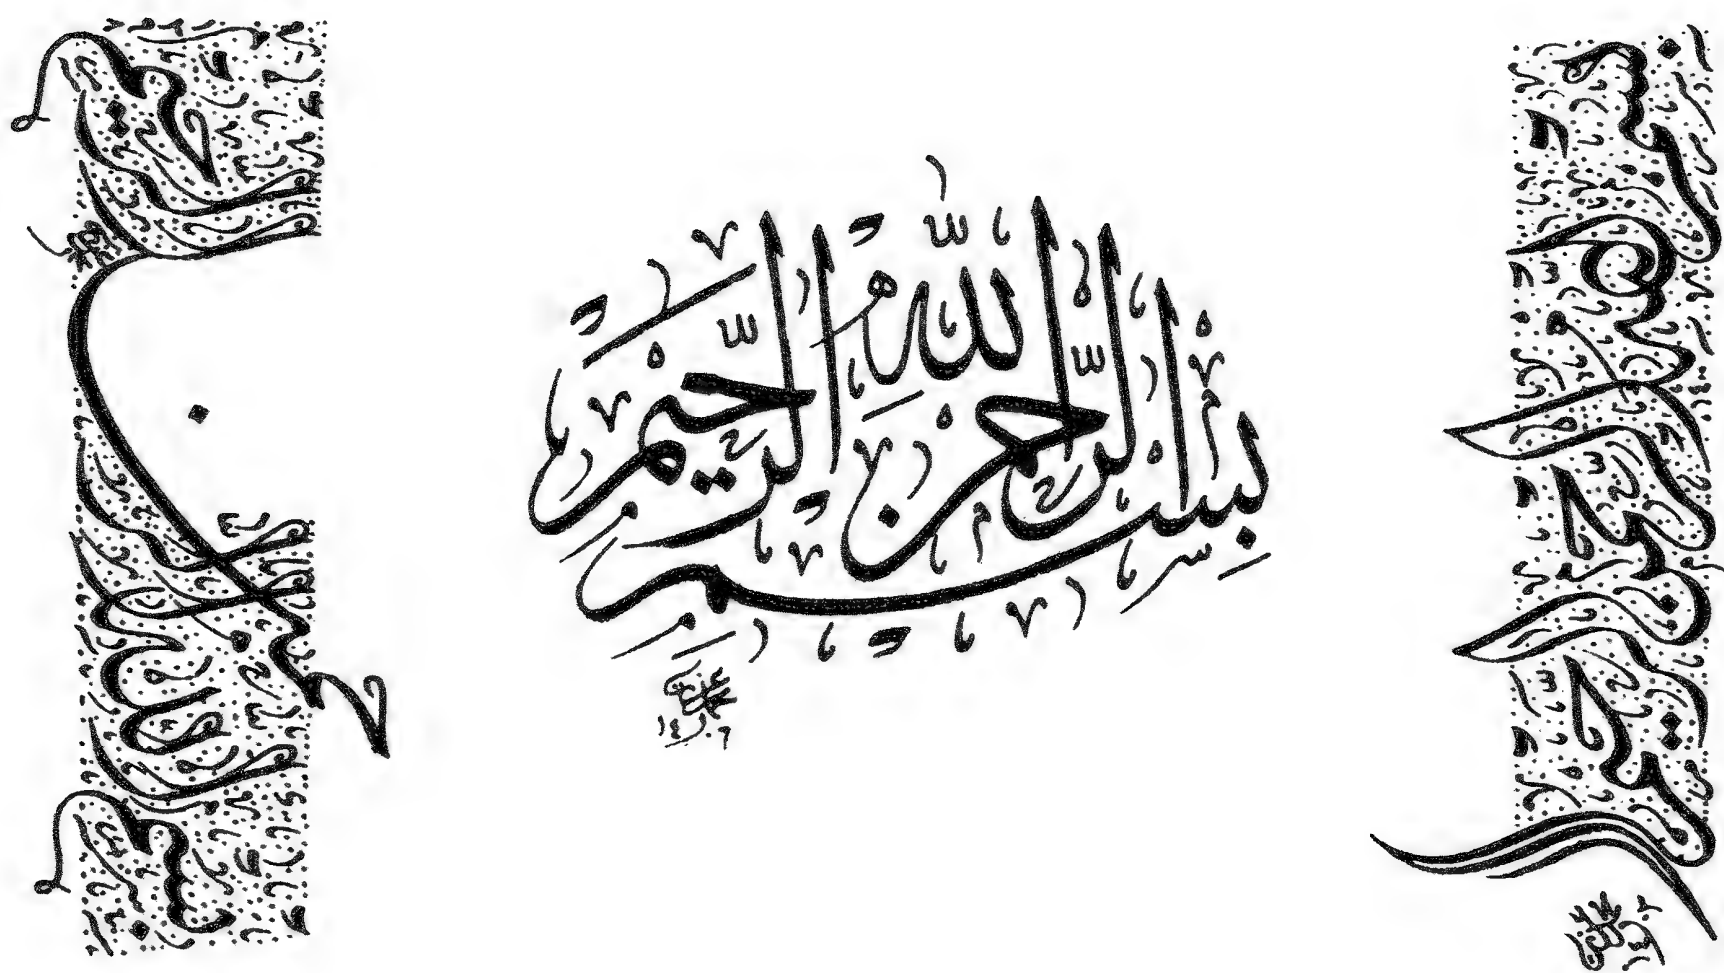 بِسْمِ اللَّهِ الرَّحْمَٰنِ الرَّحِيمِ
بسم الله الرحمن الرحيم
بسم الله الرحمن الرحيم